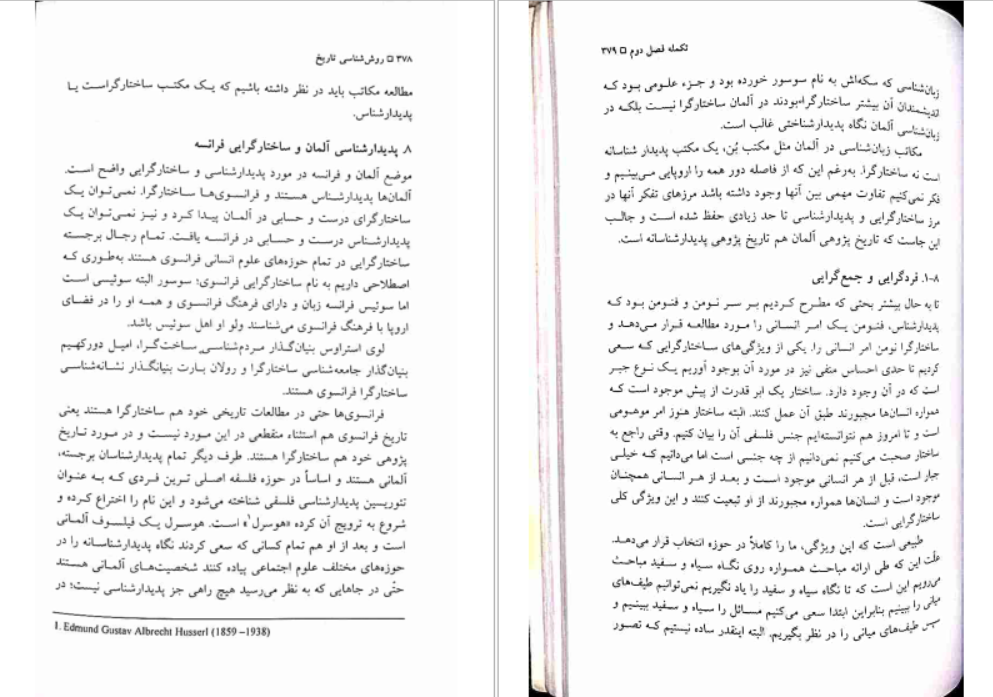 ۳۷۸ □ روش‌شناسی تاریخ
مطالعه مکاتب باید در نظر داشته باشیم که یک مکتب ساختارگراست یا
پدیدارشناس.
۸. پدیدارشناسی آلمان و ساختارگرایی فرانسه
موضع آلمان و فرانسه در مورد پدیدارشناسی و ساختارگرایی واضح است.
آلمان‌ها پدیدارشناس هستند و فرانسوی‌ها ساختارگرا. نمی‌توان یک
ساختارگرای درست و حسابی در آلمان پیدا کرد و نیز نمی‌توان یک
پدیدارشناس درست و حسابی در فرانسه یافت. تمام رجال برجسته
ساختارگرایی در تمام حوزه‌های علوم انسانی فرانسوی هستند به‌طوری که
اصطلاحی داریم به نام ساختارگرایی فرانسوی؛ سوسور البته سوئیسی است
اما سوئیس فرانسه زبان و دارای فرهنگ فرانسوی و همه او را در فضای
اروپا با فرهنگ فرانسوی می‌شناسند ولو او اهل سوئیس باشد.
لوی استراوس بنیان‌گذار مردم‌شناسی ساخت‌گرا، امیل دورکهیم
بنیان‌گذار جامعه‌شناسی ساختارگرا و رولان بارت بنیانگذار نشانه‌شناسی
ساختارگرا فرانسوی هستند.
فرانسوی‌ها حتی در مطالعات تاریخی خود هم ساختارگرا هستند یعنی
تاریخ فرانسوی هم استثناء منقطعی در این مورد نیست و در مورد تاریخ
پژوهی خود هم ساختارگرا هستند. طرف دیگر تمام پدیدارشناسان برجسته،
آلمانی هستند و اساساً در حوزه فلسفه اصلی ترین فردی که به عنوان
تئوریسین پدیدارشناسی فلسفی شناخته می‌شود و این نام را اختراع کرده و
شروع به ترویج آن کرده «هوسرل¹» است. هوسرل یک فیلسوف آلمانی
است و بعد از او هم تمام کسانی که سعی کردند نگاه پدیدارشناسانه را در
حوزه‌های مختلف علوم اجتماعی پیاده کنند شخصیت‌های آلمانی هستند
حتّی در جاهایی که به نظر می‌رسید هیچ راهی جز پدیدارشناسی نیست؛ در
1. Edmund Gustav Albrecht Husserl (1859 –1938)
تکمله فصل دوم □ ۳۷۹
زبان‌شناسی که سکه‌اش به نام سوسور خورده بود و جزء علومی بود که
اندیشمندان آن بیشتر ساختارگرا بودند در آلمان ساختارگرا نیست بلکه در
زبان‌شناسی آلمان نگاه پدیدارشناختی غالب است.
مکاتب زبان‌شناسی در آلمان مثل مکتب بُن، یک مکتب پدیدار شناسانه
است نه ساختارگرا. به‌رغم این که از فاصله دور همه را اروپایی می‌بینیم و
فکر نمی‌کنیم تفاوت مهمی بین آنها وجود داشته باشد مرزهای تفکر آنها در
مرز ساختارگرایی و پدیدارشناسی تا حد زیادی حفظ شده است و جالب
این جاست که تاریخ پژوهی آلمان هم تاریخ پژوهی پدیدارشناسانه است.
۸-۱. فردگرایی و جمع‌گرایی
تا به حال بیشتر بحثی که مطرح کردیم بر سر نومن و فنومن بود که
پدیدارشناس، فنومن یک امر انسانی را مورد مطالعه قرار می‌دهد و
ساختارگرا نومن امر انسانی را. یکی از ویژگی‌های ساختارگرایی که سعی
کردیم تا حدی احساس منفی نیز در مورد آن بوجود آوریم یک نوع جبر
است که در آن وجود دارد. ساختار یک ابر قدرت از پیش موجود است که
همواره انسان‌ها مجبورند طبق آن عمل کنند. البته ساختار هنوز امر موهومی
است و تا امروز هم نتوانسته‌ایم جنس فلسفی آن را بیان کنیم. وقتی راجع به
ساختار صحبت می‌کنیم نمی‌دانیم از چه جنسی است اما می‌دانیم که خیلی
جبار است، قبل از هر انسانی موجود است و بعد از هر انسانی همچنان
موجود است و انسان‌ها همواره مجبورند از او تبعیت کنند و این ویژگی کلی
ساختارگرایی است.
طبیعی است که این ویژگی، ما را کاملاً در حوزه انتخاب قرار می‌دهد.
علّت این که طی ارائه مباحث همواره روی نگاه سیاه و سفید مباحث
می‌رویم این است که تا نگاه سیاه و سفید را یاد نگیریم نمی‌توانیم طیف‌های
میانی را ببینیم بنابراین ابتدا سعی می‌کنیم مسائل را سیاه و سفید ببینیم و
سپس طیف‌های میانی را در نظر بگیریم. البته اینقدر ساده نیستیم که تصور